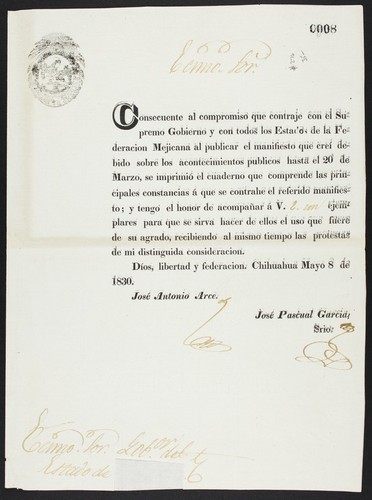 0008
Ecmo. Sor.
Consecuente al compromiso que contraje con el Su-
premo Gobierno y con todos los Estacos de la Fe-
deracion Mejicana al publicar el manifiesto que creí de-
bido sobre los acontecimientos publicos hasta el 20 de
Marzo, se imprimió el cuaderno que comprende las prin-
cipales constancias á que se contrahe el referido manifies-
to; y tengo el honor de acompañar á V. 2 ejem-
plares para que se sirva hacer de ellos el uso que fuere
de su agrado, recibiendo al mismo tiempo las protestas
de mi distinguida consideracion.
Díos, libertad y federacion. Chihuahua Mayo 8 de
1830.
José Antonio Arce.
José Pascual Garcia,
Srio.
Ecmo. Sor. Gobor. del
Estado de